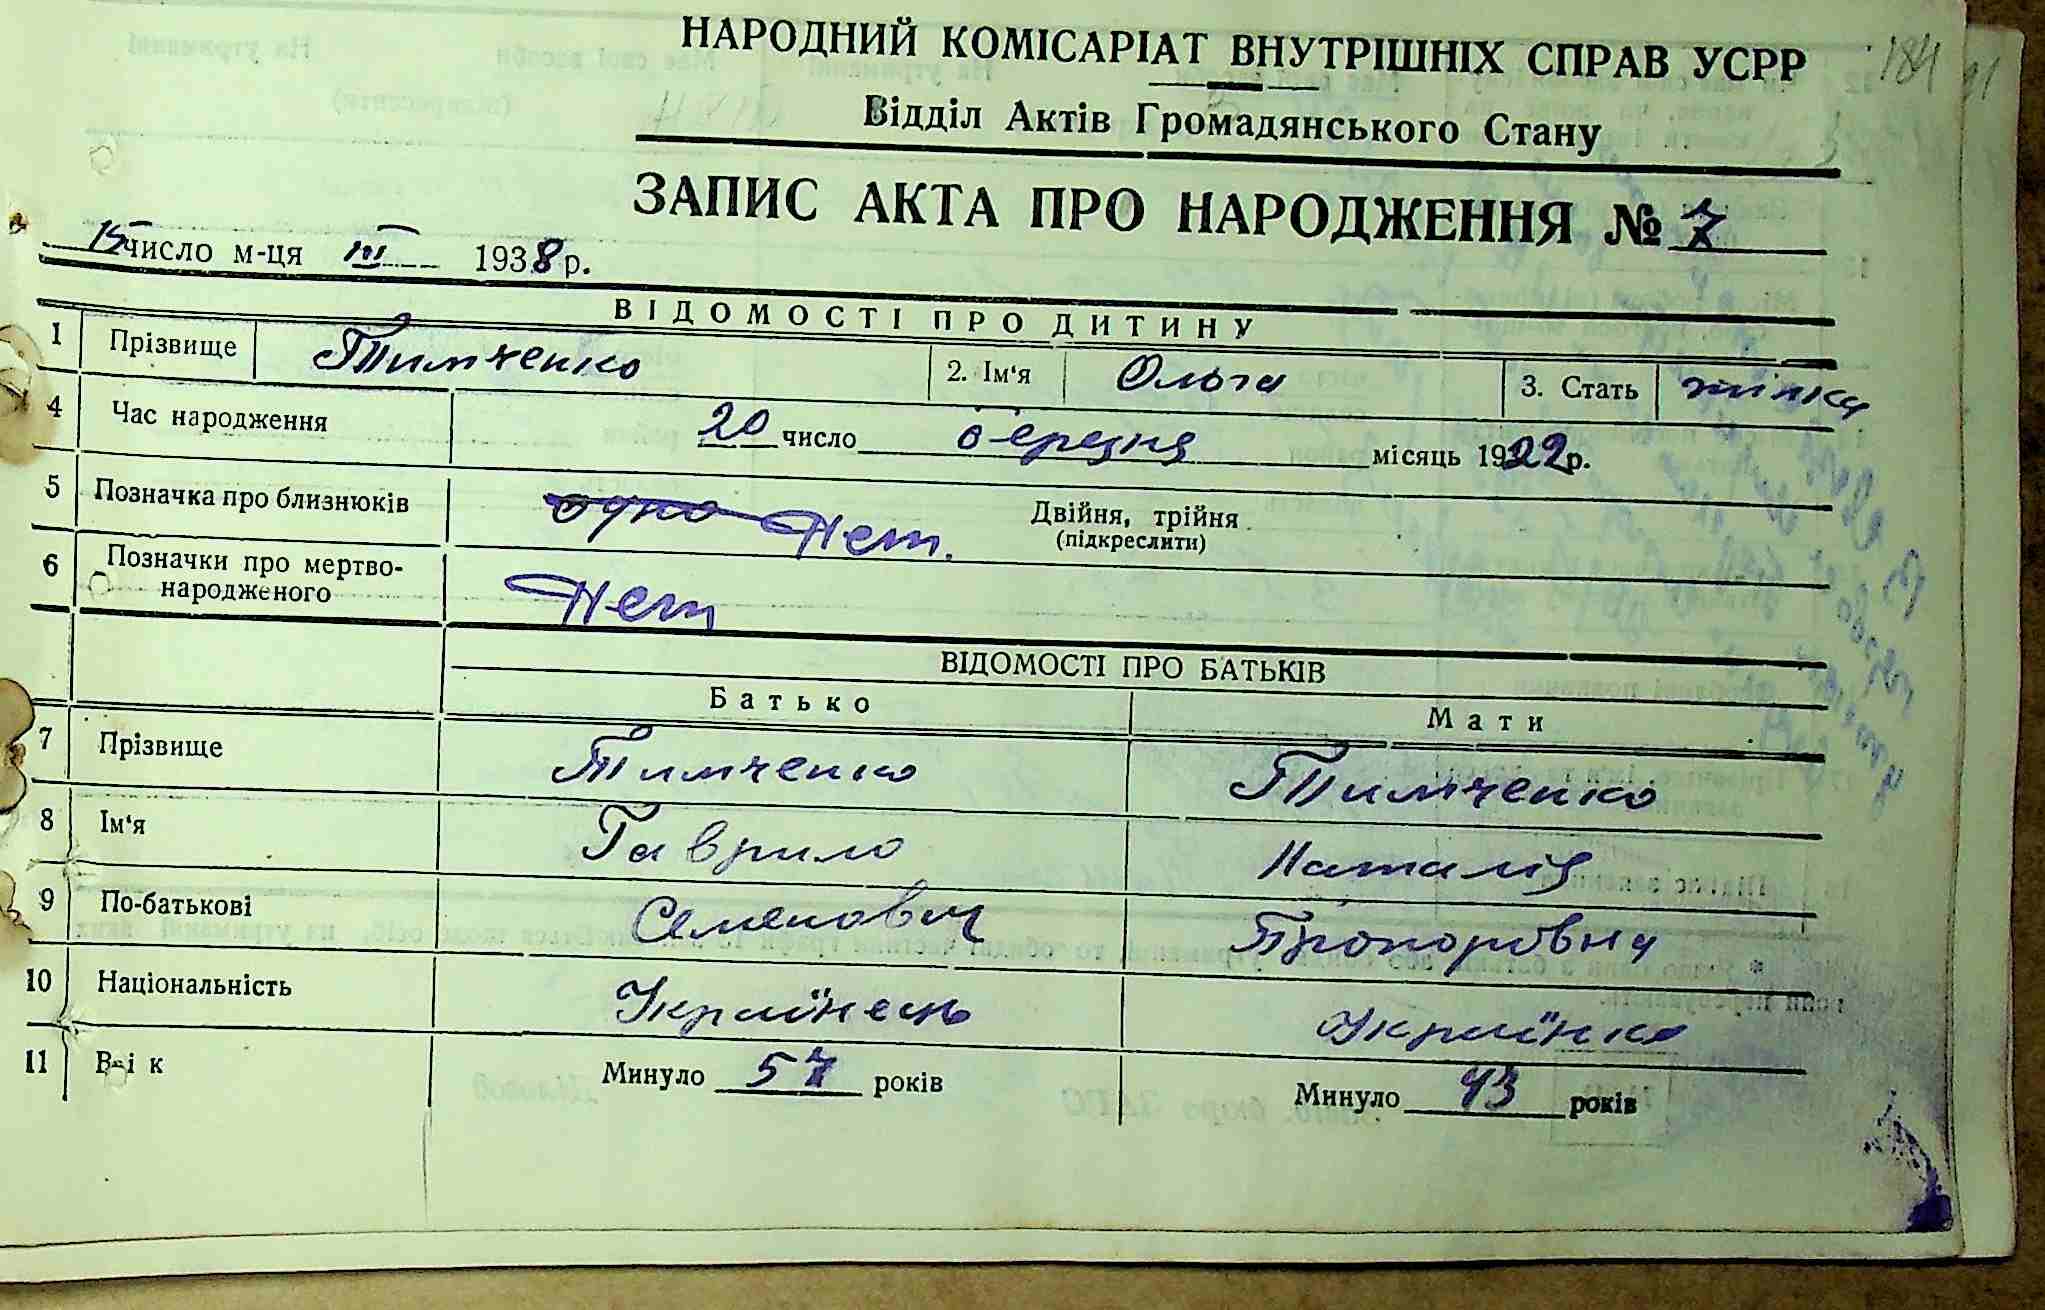 184
91
НАРОДНИЙ КОМІСАРІАТ ВНУТРІШНІХ СПРАВ УСРР
Відділ Актів Громадянського Стану
ЗАПИС АКТА ПРО НАРОДЖЕННЯ № 7
15 число м-ця III 1938 р.
ВІДОМОСТІ ПРО ДИТИНУ
1 Прізвище Тимченко 2. Ім'я Ольга 3. Стать жінка
4 Час народження 20 число березня місяць 1922 р.
5 Позначка про близнюків одно Нет. Двійня, трійня
(підкреслити)
6 Позначки про мертво-
народженого Нет
ВІДОМОСТІ ПРО БАТЬКІВ
Батько Мати
7 Прізвище Тимченко Тимченко
8 Ім'я Гаврило Наталія
9 По-батькові Семенович Прохоровна
10 Національність Українець Українка
11 Вік Минуло 57 років Минуло 43 років